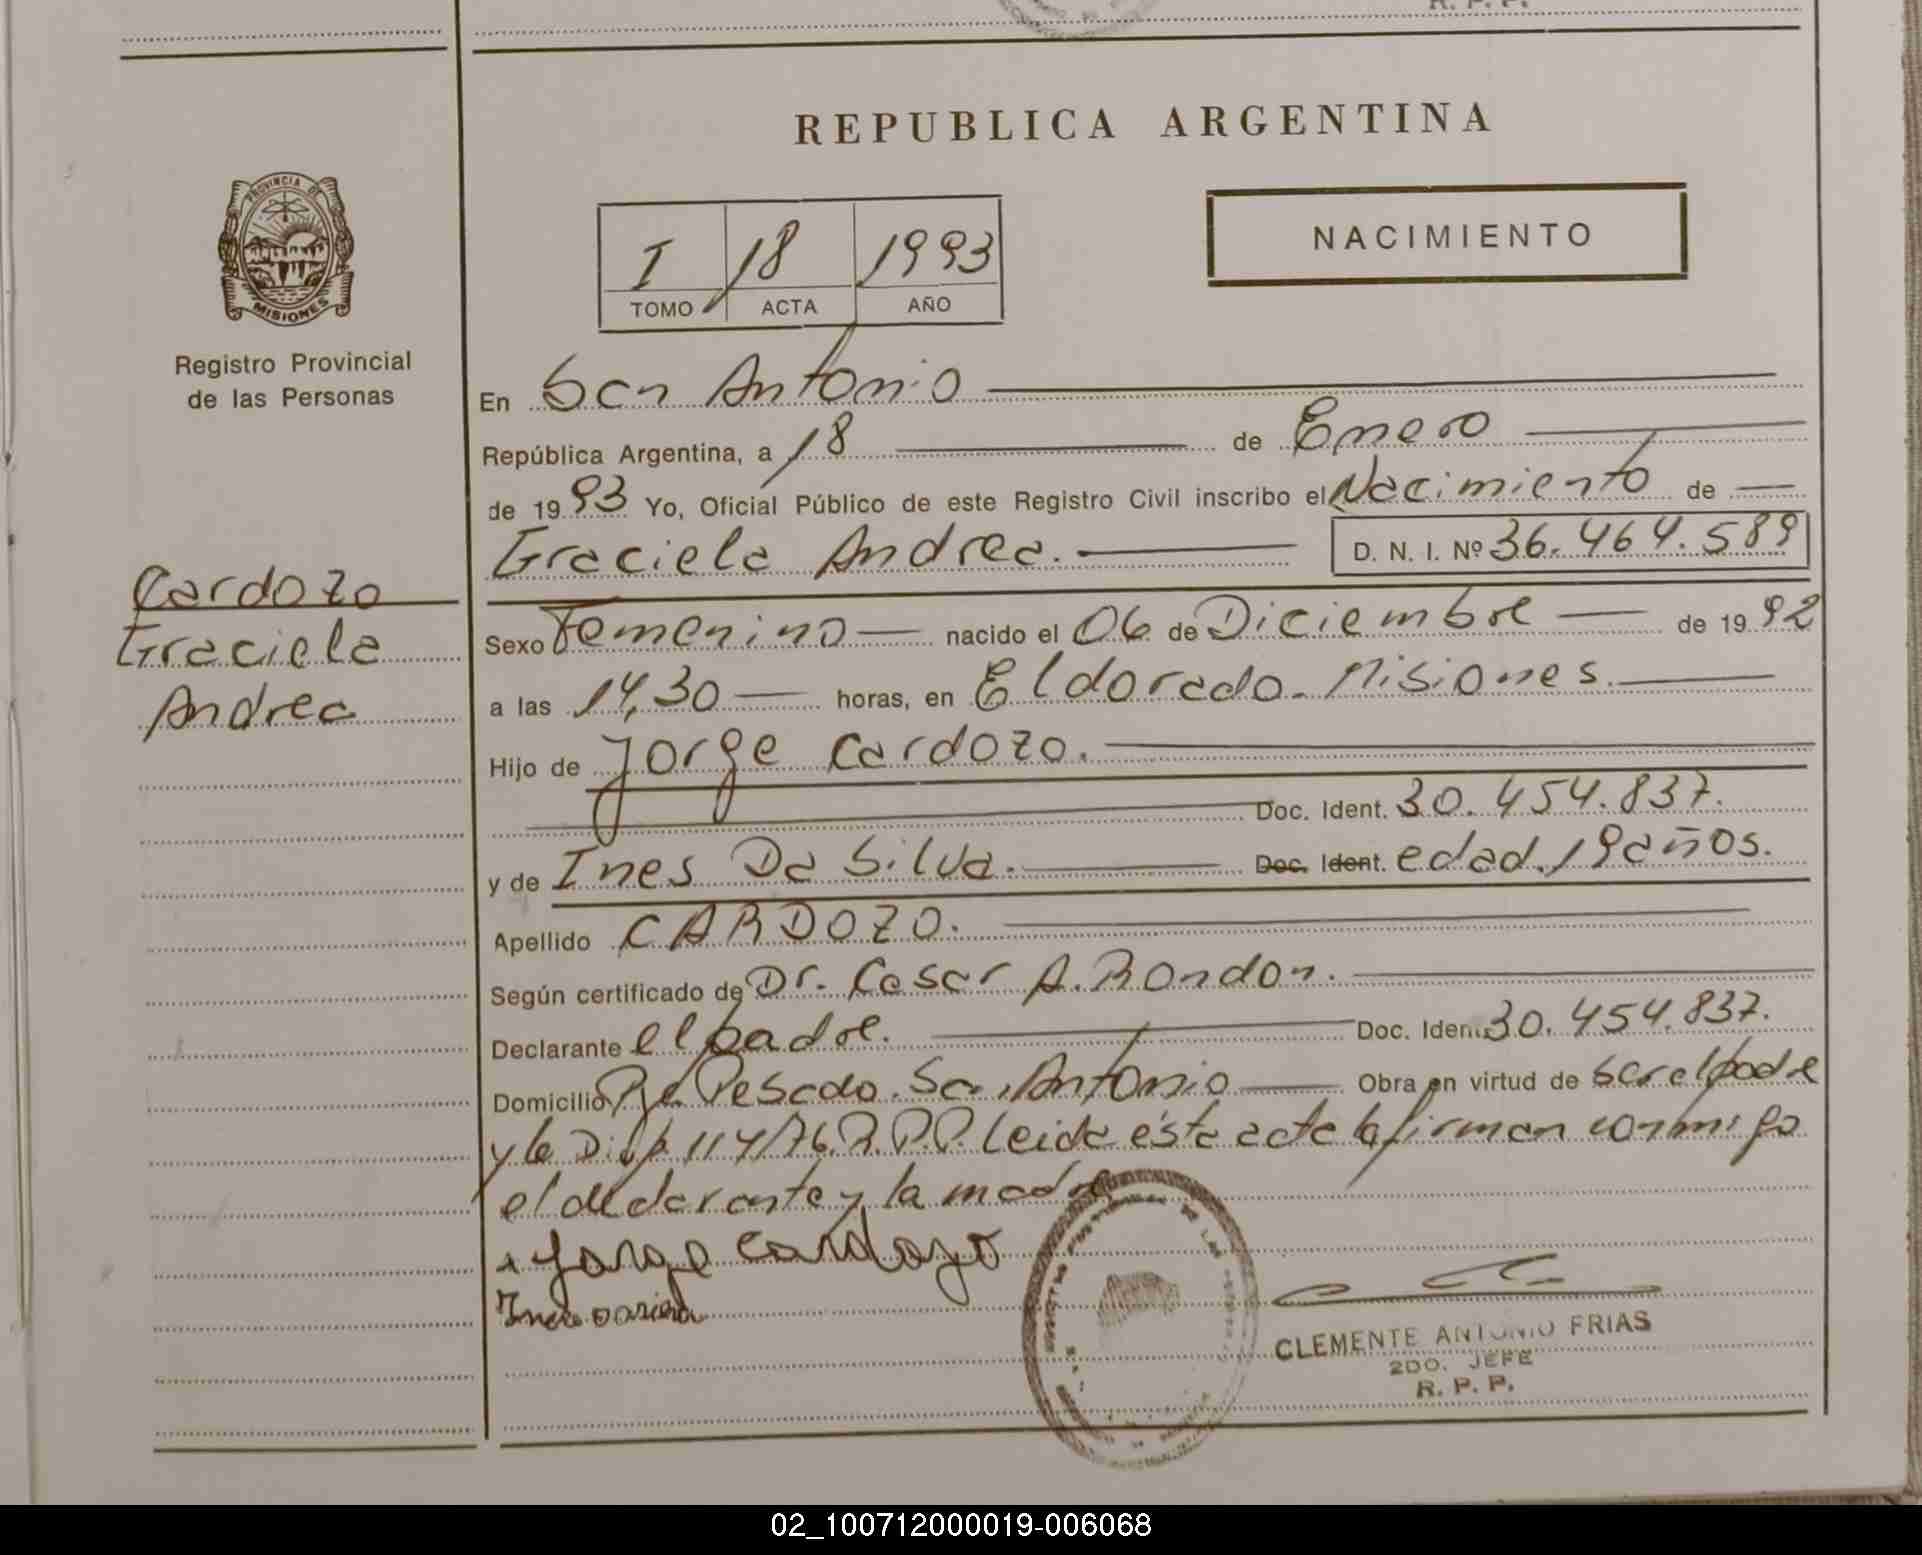 R. P. P.
REPUBLICA ARGENTINA
PROVINCIA DE
MISIONES
Registro Provincial
de las Personas
I 18 1993
TOMO ACTA AÑO
NACIMIENTO
En San Antonio
República Argentina, a 18 de Enero
de 1993 Yo, Oficial Público de este Registro Civil inscribo el Nacimiento de
Graciela Andrea. D. N. I. Nº 36.464.589
Cardozo
Graciela
Andrea
Sexo Femenino nacido el 06 de Diciembre de 1992
a las 14,30 horas, en Eldorado. Misiones.
Hijo de Jorge Cardozo.
Doc. Ident. 30.454.837.
y de Ines Da Silva. Doc. Ident. edad. 19 años.
Apellido CARDOZO.
Según certificado de Dr. Cesar A. Rondon.
Declarante el padre. Doc. Iden. 30.454.837.
Domicilio Pje Pesado. San Antonio Obra en virtud de ser el padre
y la Disp. 114/76. R.P.P. Leida ésta acta la firman conmigo
el declarante y la madre
Jorge Cardozo
CLEMENTE ANTONIO FRIAS
2DO. JEFE
R. P. P.
02_100712000019-006068